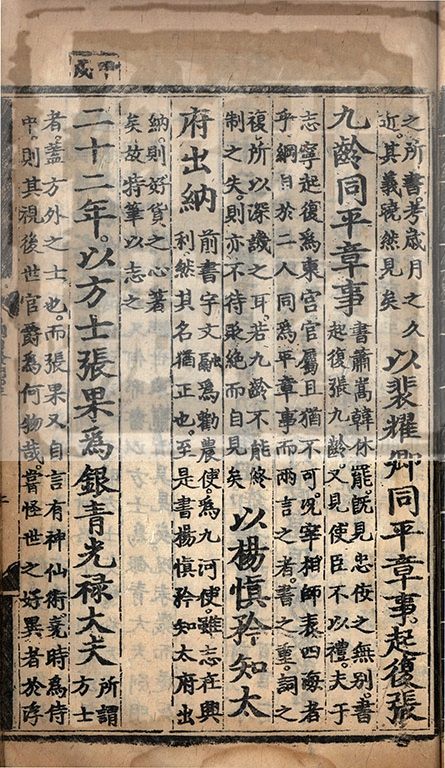 甲戌
之所書考歲月之久
近。其義曉然見矣
以裴耀卿同平章事。起復張
九齡同平章事
書蕭嵩韓休罷。旣見忠佞之無別。書
起復張九齡。又見使臣不以禮。夫于
志寧起復爲東宮官屬。且猶不可。況宰相師表四海者
乎。綱目於二人同爲平章事而兩言之者。書之重。詞之
複。所以深譏之耳。若九齡不能終
制之失。則亦不待貶絕而自見矣
以楊愼矜知太
府出納
前書宇文融爲勸農使。爲九河使。雖志在興
利。然其名猶正也。至是書楊愼矜知太府出
納。則好貨之心著
矣。故特筆以志之
二十二年。以方士張果爲銀青光禄大夫
所謂
方士
者。蓋方外之士也。而張果又自言有神仙術。堯時爲侍
中。則其視後世官爵爲何物哉。嘗怪世之好異者於浮